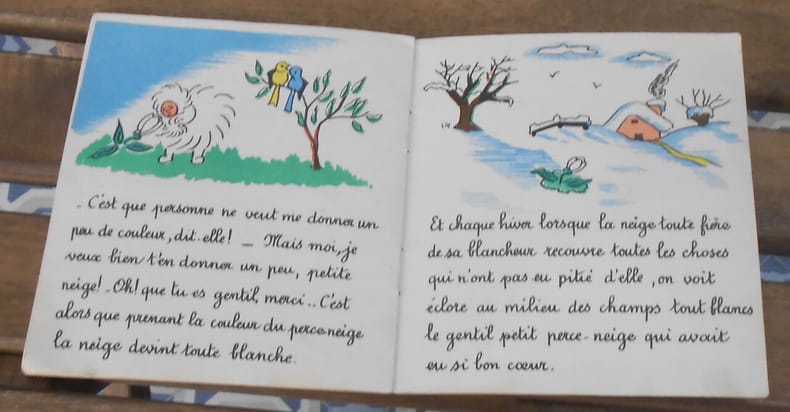 - C'est que personne ne veut me donner un
peu de couleur, dit-elle! _ Mais moi, je
veux bien t'en donner un peu, petite
neige! - Oh! que tu es gentil, merci... C'est
alors que prenant la couleur du perce-neige
la neige devint toute blanche.
Et chaque hiver lorsque la neige toute fière
de sa blancheur recouvre toutes les choses
qui n'ont pas eu pitié d'elle, on voit
éclore au milieu des champs tout blancs
le gentil petit perce-neige qui avait
eu si bon cœur.